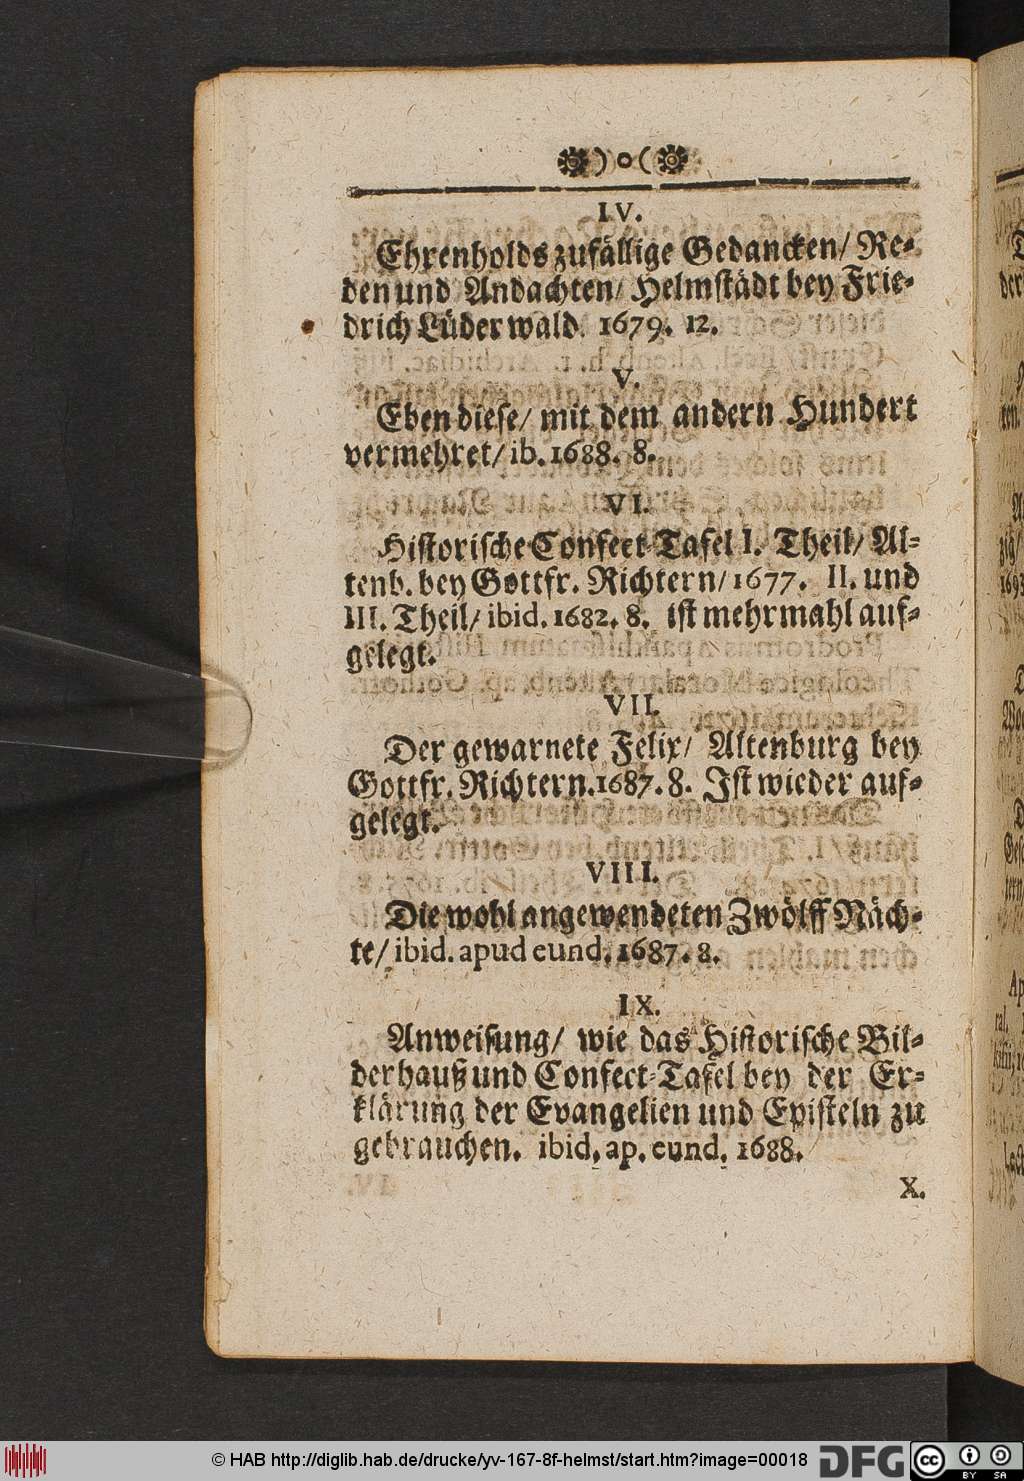 ) o (
IV.
Ehrenholds zufällige Gedancken/ Re-
den und Andachten/ Helmstädt bey Frie-
drich Lüderwald. 1679. 12.
V.
Eben diese/ mit dem andern Hundert
vermehret/ ib. 1688. 8.
VI.
Historische Confect-Tafel I. Theil/ Al-
tenb. bey Gottfr. Richtern/ 1677. II. und
III. Theil/ ibid. 1682. 8. ist mehrmahl auf-
gelegt.
VII.
Der gewarnete Felix/ Altenburg bey
Gottfr. Richtern. 1687. 8. Ist wieder auf-
gelegt.
VIII.
Die wohl angewendeten Zwölff Näch-
te/ ibid. apud eund. 1687. 8.
IX.
Anweisung/ wie das Historische Bil-
derhauß und Confect-Tafel bey der Er-
klärung der Evangelien und Episteln zu
gebrauchen. ibid. ap. eund. 1688.
X.
© HAB http://diglib.hab.de/drucke/yv-167-8f-helmst/start.htm?image=00018
DFG
cc BY SA